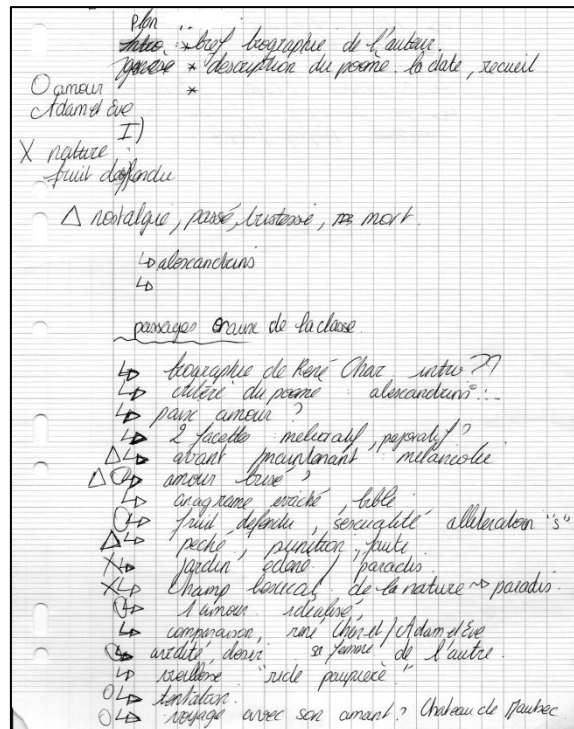 plan
intro : * bref biographie de l'auteur.
* description du poème. la date, recueil
O amour *
Adam et Eve
I)
X nature :
fruit deffendu
△ nostalgue, passé, tristesse, mort.
↳ alexandrins
↳
passages oraux de la classe
↳ biographie de René Char. intro ??
↳ critère du poème alexandrins...
↳ paix amour ?
↳ 2 facettes melioratif, pejoratif ?
△ ↳ avant / maintenant melancolie
△ O ↳ amour brisé ?
↳ anagrame evaché, bible
O ↳ fruit defendu, sexualité alliteration "s"
△ ↳ peché, punition, faute
X ↳ jardin edene / paradis
X ↳ champ lexical de la nature ~> paradis.
O ↳ l'amour idealisé,
↳ comparaison, rené Char et / Adam et Eve
O ↳ aridité, desir sa femme de l'autre.
↳ vieillesse "ride paupière"
O ↳ tentation.
O ↳ voyage avec son amant ? Chateau de Maubec